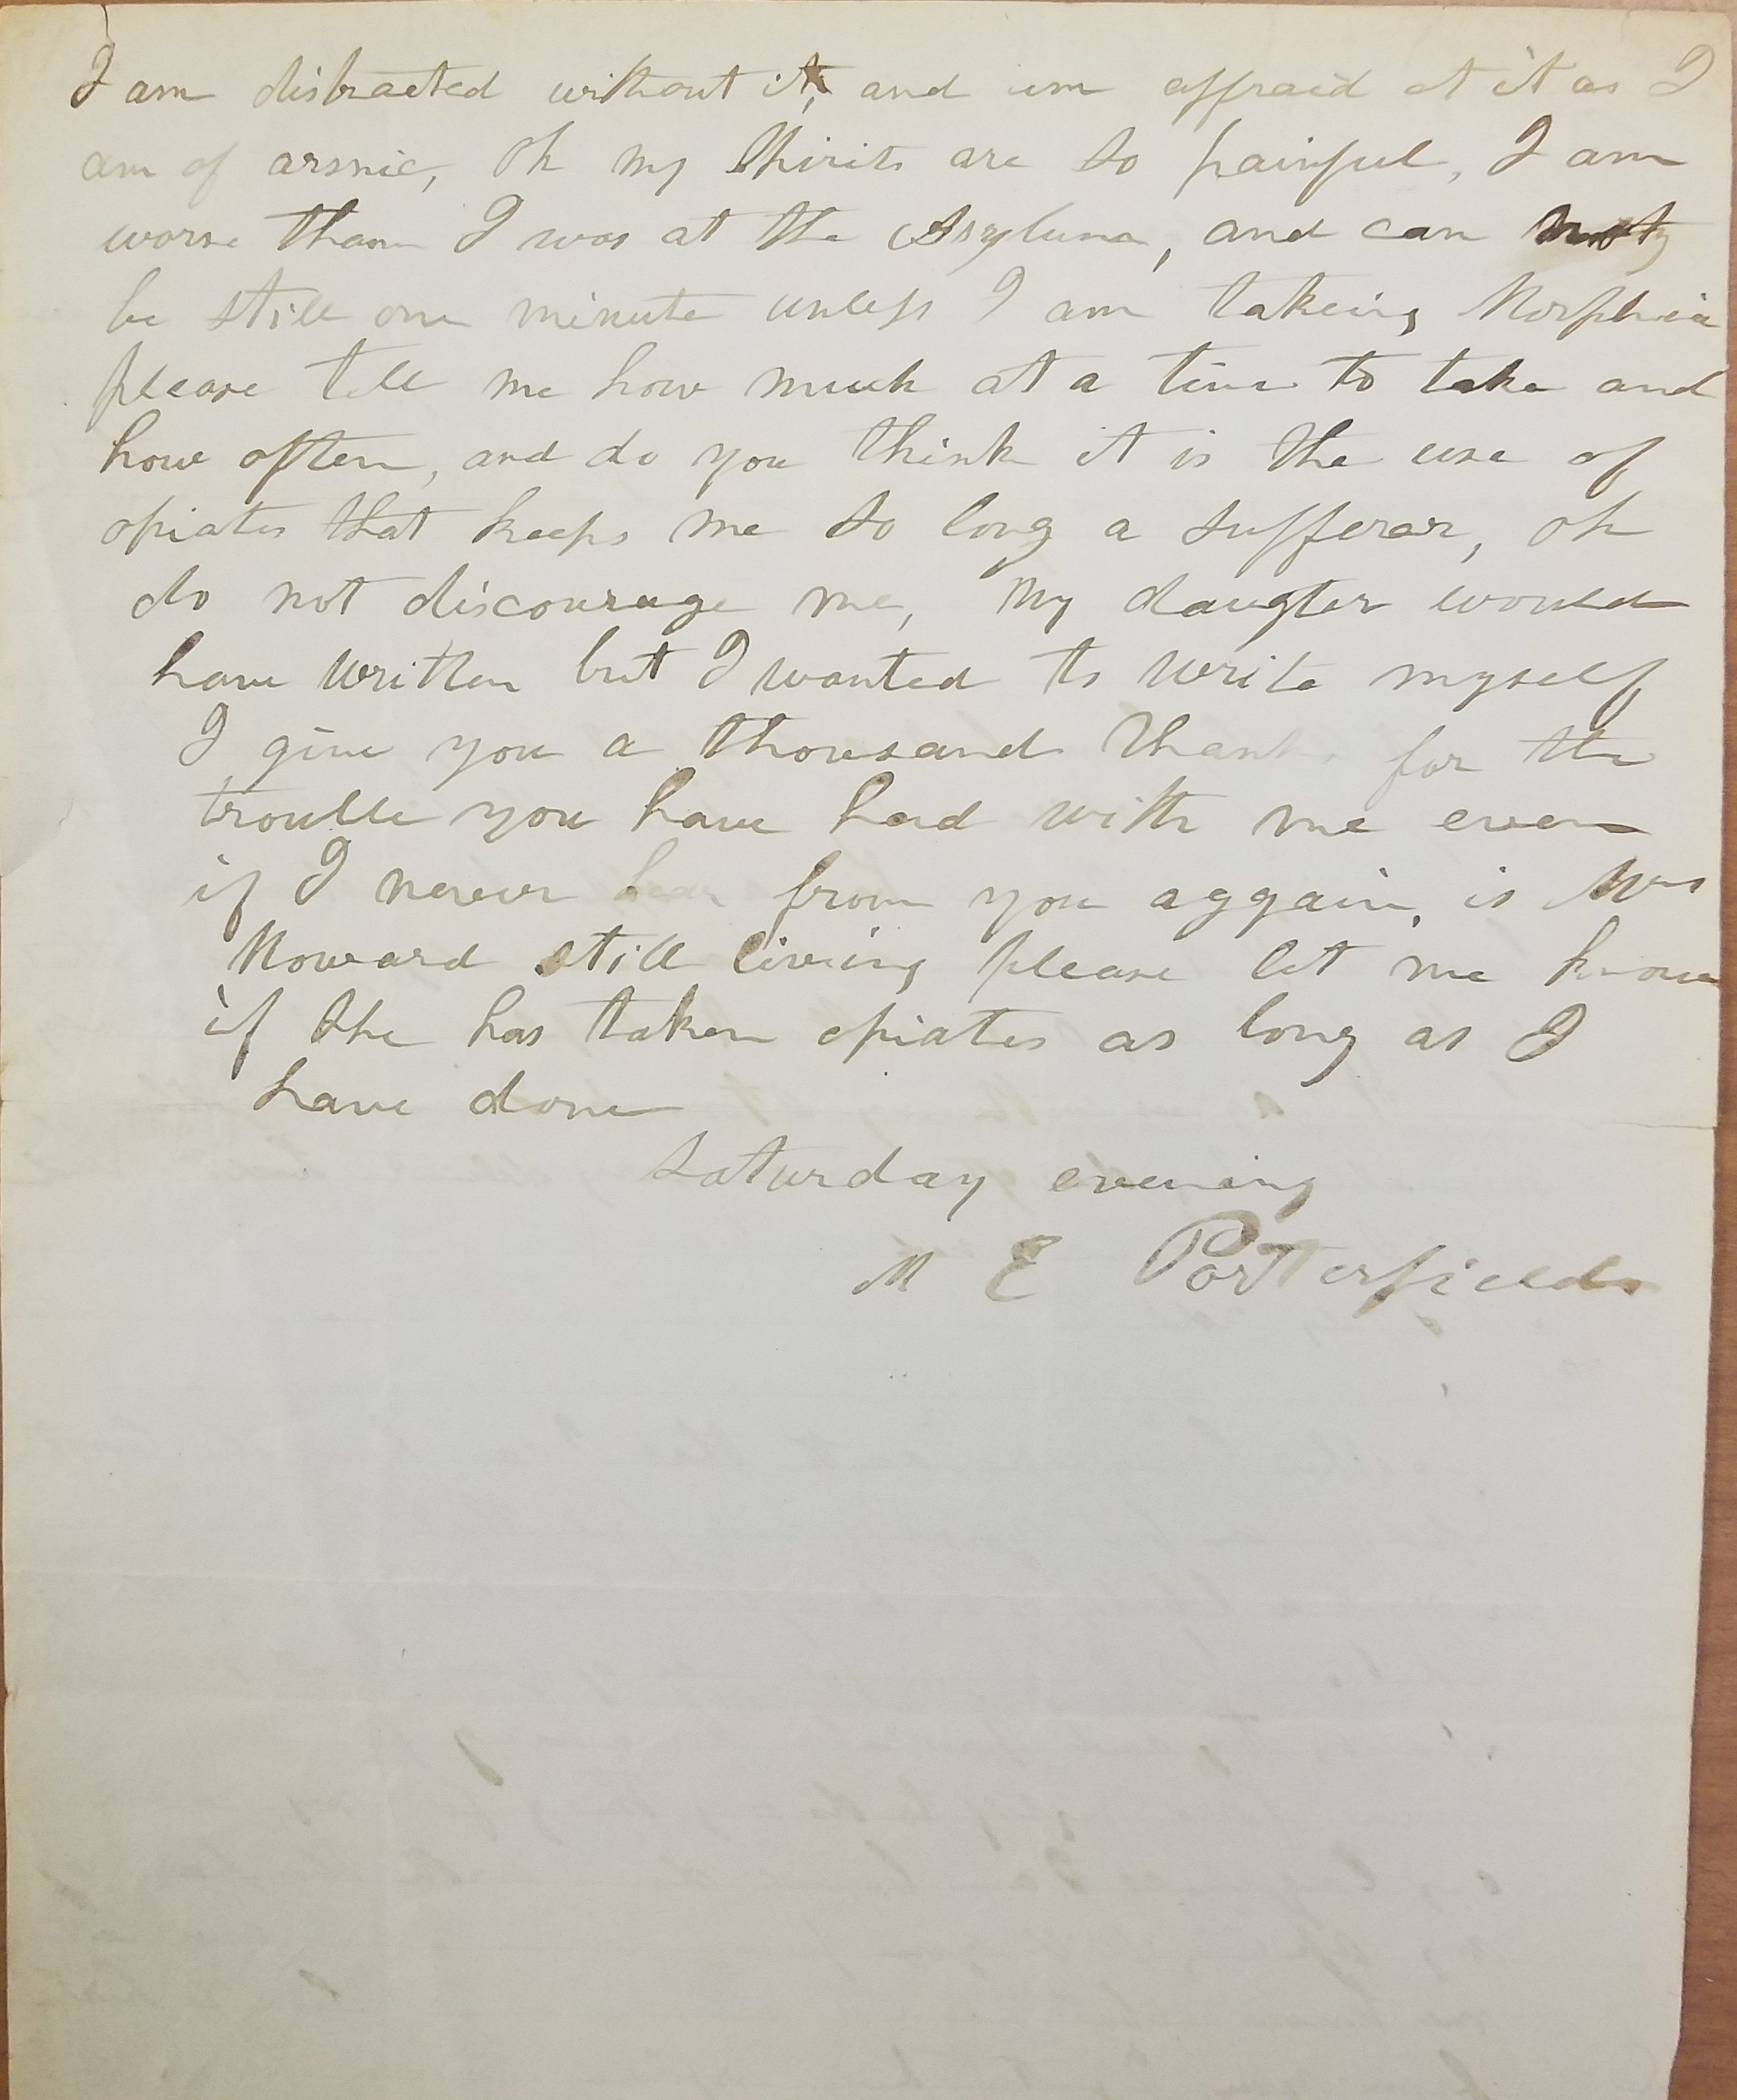 I am distracted without it, and am affraid at it as I
am of arsnic, Oh my Spirits are so painful, I am
worse than I was at the Assylum, and can not
be still one minute unless I am takeing Morphia
please tell me how much at a time to take and
how often, and do you think it is the use of
opiates that keeps me so long a sufferer, oh
do not discourage me, My daugter would
have written but I wanted to write myself
I give you a thousand thanks for the
trouble you have had with me even
if I never hear from you aggain, is Mrs
Howard still living please let me know
if she has taken opiates as long as I
have done
Saturday evening
M E Porterfield